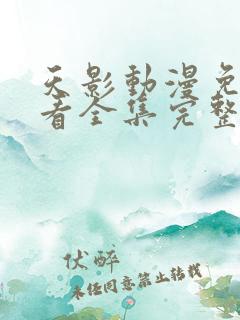 天影動漫免
看全集完整
伏醉
未经同意禁止转载